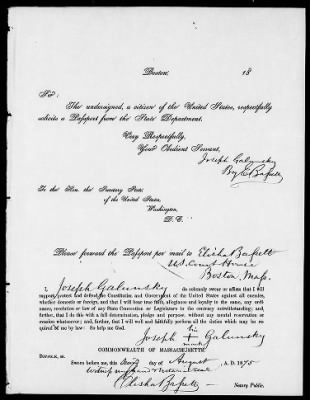 Boston, 18
Sir:
The undersigned, a citizen of the United States, respectfully
solicits a Passport from the State Department.
Very Respectfully,
Your Obedient Servant,
Joseph Galunsky
By E Bassett
To the Hon. the Secretary State
of the United States,
Washington,
D. C.
Please forward the Passport per mail to Elisha Bassett
U.S. Court House
Boston, Mass.
I, Joseph Galunsky do solemnly swear or affirm that I will
support, protect and defend the Constitution, and Government of the United States against all enemies,
whether domestic or foreign, and that I will bear true faith, allegiance and loyalty to the same, any ordi-
nance, resolution or law of any State Convention or Legislature to the contrary notwithstanding, and,
further, that I do this with a full determination, pledge and purpose, without any mental reservation or
evasion whatsoever; and, further, that I will well and faithfully perform all the duties which may be re-
quired of me by law: So help me God.
Joseph his + mark Galunsky
COMMONWEALTH OF MASSACHUSETTS.
Suffolk, ss.
Sworn before me, this day of August A. D. 1875
Witness my hand & notarial seal
Elisha Bassett Notary Public.